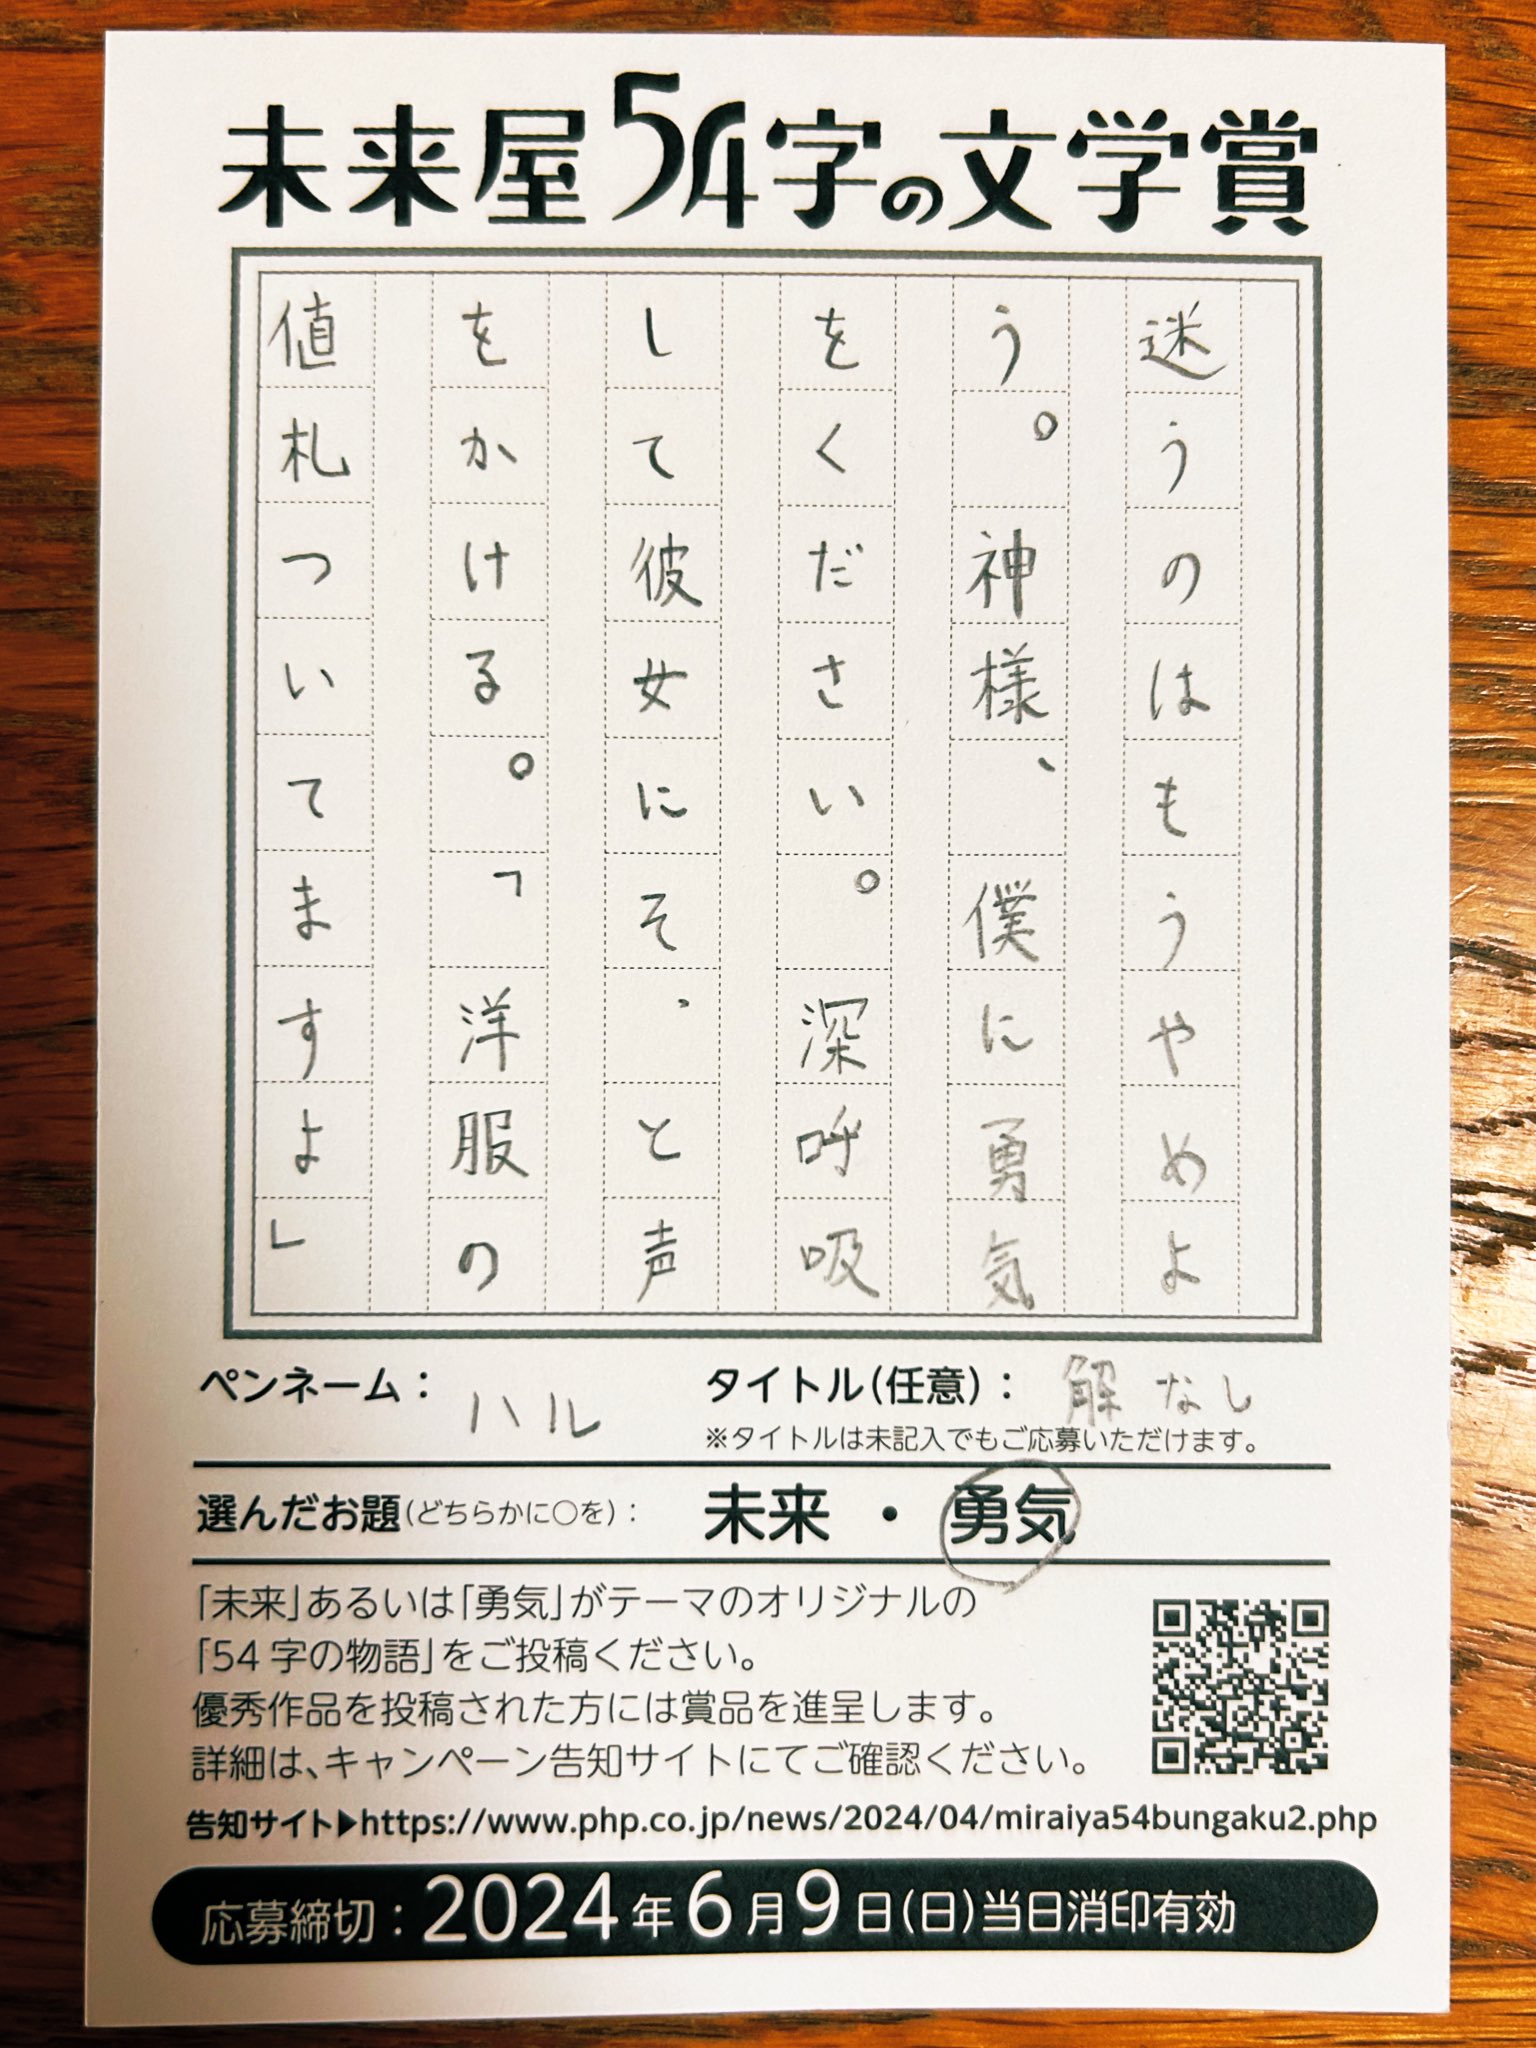 未来屋54字の文学賞
迷うのはもうやめよ
う。神様、僕に勇気
をください。深呼吸
して彼女にそっと声
をかける。「洋服の
値札ついてますよ」
ペンネーム：ハル
タイトル(任意)：解なし
※タイトルは未記入でもご応募いただけます。
選んだお題(どちらかに○を)：未来・勇気
「未来」あるいは「勇気」がテーマのオリジナルの
「54字の物語」をご投稿ください。
優秀作品を投稿された方には賞品を進呈します。
詳細は、キャンペーン告知サイトにてご確認ください。
告知サイト▶https://www.php.co.jp/news/2024/04/miraiya54bungaku2.php
応募締切：2024年6月9日(日)当日消印有効